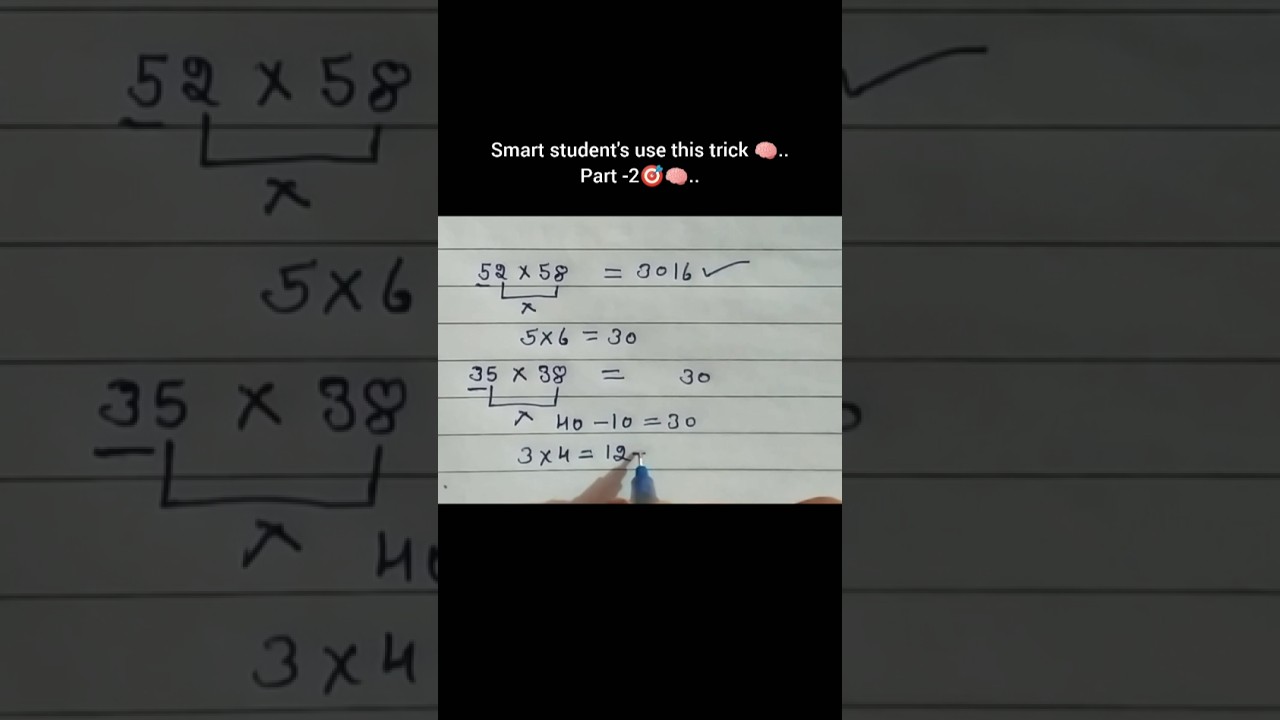 Smart student's use this trick 🧠..
Part -2🎯🧠..
52 × 58 = 3016 ✓
×
5×6 = 30
35 × 38 = 30
× 40 - 10 = 30
3 × 4 = 12